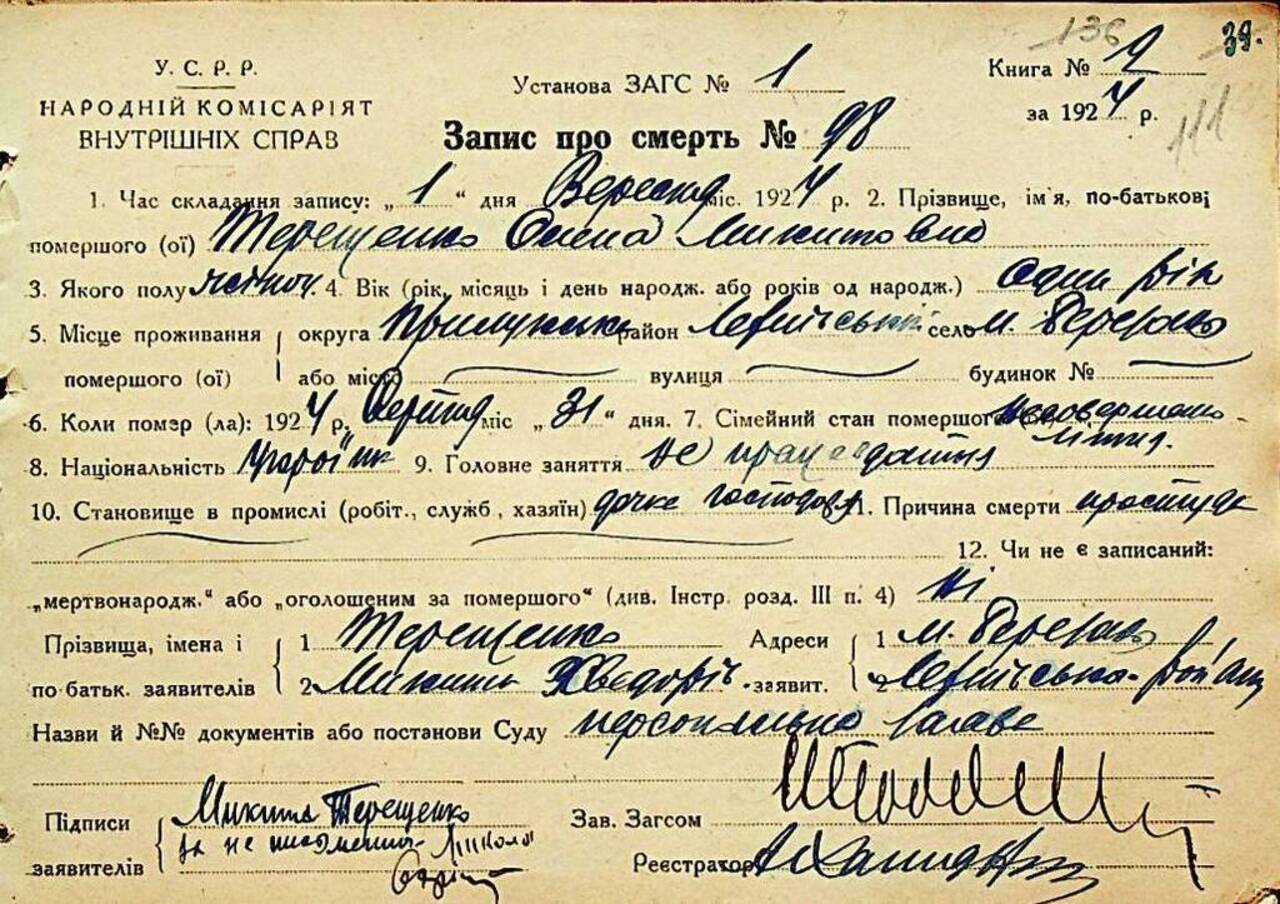 136 39.
У. С. Р. Р.
НАРОДНІЙ КОМІСАРІЯТ
ВНУТРІШНІХ СПРАВ
Установа ЗАГС № 1
Книга № 2
за 1924 р.
111
Запис про смерть № 98
1. Час складання запису: „ 1 “ дня Вересня міс. 1924 р. 2. Прізвище, ім'я, по-батькові
помершого (ої) Терещенко Олена Микитовна
3. Якого полу жіночі 4. Вік (рік, місяць і день народж. або років од народж.) один рік
5. Місце проживання округа Прилуцька район село м.
помершого (ої) або місто вулиця будинок №
6. Коли помер (ла): 1924 р. Серпня міс „ 31 “ дня. 7. Сімейний стан помершого
8. Національність Українк 9. Головне заняття не працездатня
10. Становище в промислі (робіт., служб, хазяїн) дочка господаря 11. Причина смерти простуда
12. Чи не є записаний:
„мертвонародж.“ або „оголошеним за помершого“ (див. Інстр. розд. III п. 4) Ні
Прізвища, імена і 1 Терещенко Адреси 1 м.
по батьк. заявителів 2 Микита Хведоріч заявит. 2
Назви й №№ документів або постанови Суду персональна заява
Підписи Микита Терещенко Зав. Загсом
заявителів за не письменна Микола Реєстратор